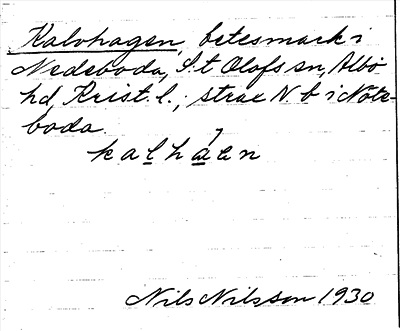 Kalvhagen, betesmark i
Nedeboda, S:t Olofs sn, Albo
hd, Krist. l.; strax N. b i Näte-
boda.
kalhaen
Nils Nilsson 1930